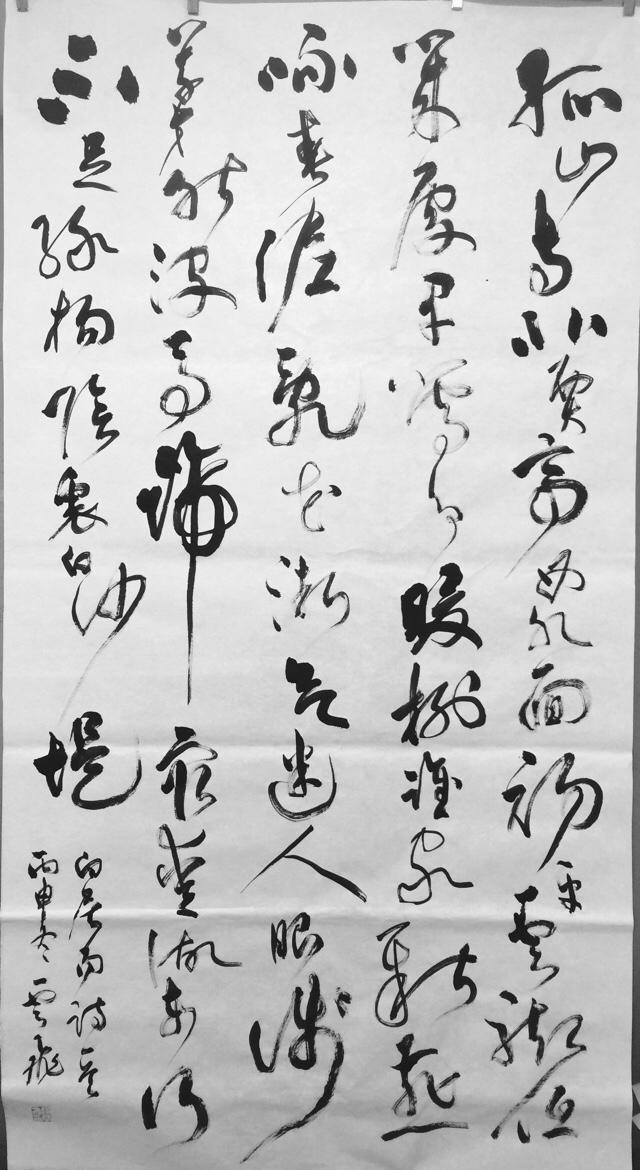 孤山寺北賈亭西水面初平雲腳低
幾處早鶯爭暖樹誰家新燕
啄春泥亂花漸欲迷人眼淺
草才能沒馬蹄最愛湖東行
不足綠楊陰裏白沙堤
白居易詩
丙申冬雲飛